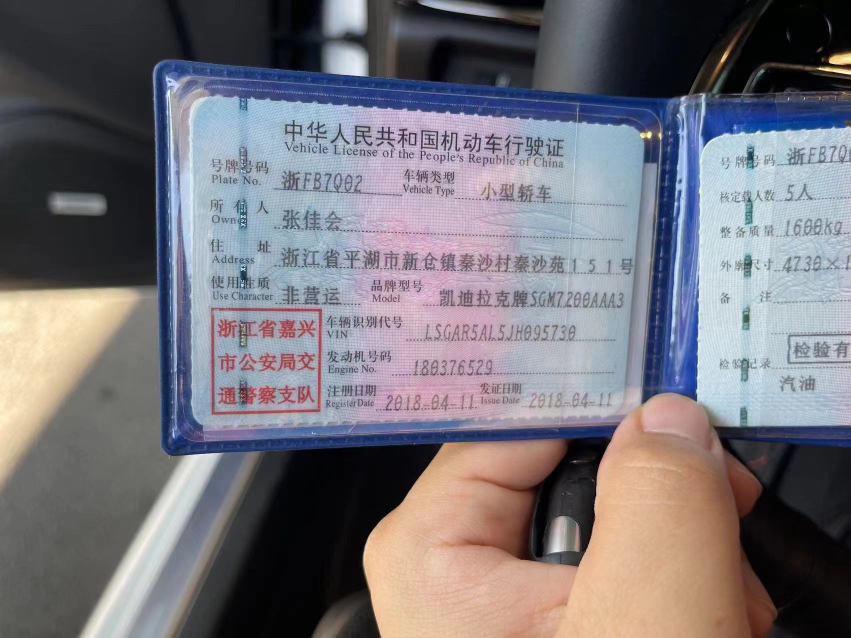 中华人民共和国机动车行驶证
Vehicle License of the People's Republic of China
号牌号码 浙FB7Q02 车辆类型 小型轿车
Plate No. Vehicle Type
所有人 张佳会
Owner
住址 浙江省平湖市新仓镇秦沙村秦沙苑151号
Address
使用性质 非营运 品牌型号 凯迪拉克牌SGM7200AAA3
Use Character Model
浙江省嘉兴
市公安局交
通警察支队
车辆识别代号 LSGAR5AL5JH095730
VIN
发动机号码 180376529
Engine No.
注册日期 2018-04-11 发证日期 2018-04-11
Register Date Issue Date
号牌号码 浙FB7Q
核定载人数 5人
整备质量 1600kg
外廓尺寸 4730×
备注
检验记录 检验有
汽油